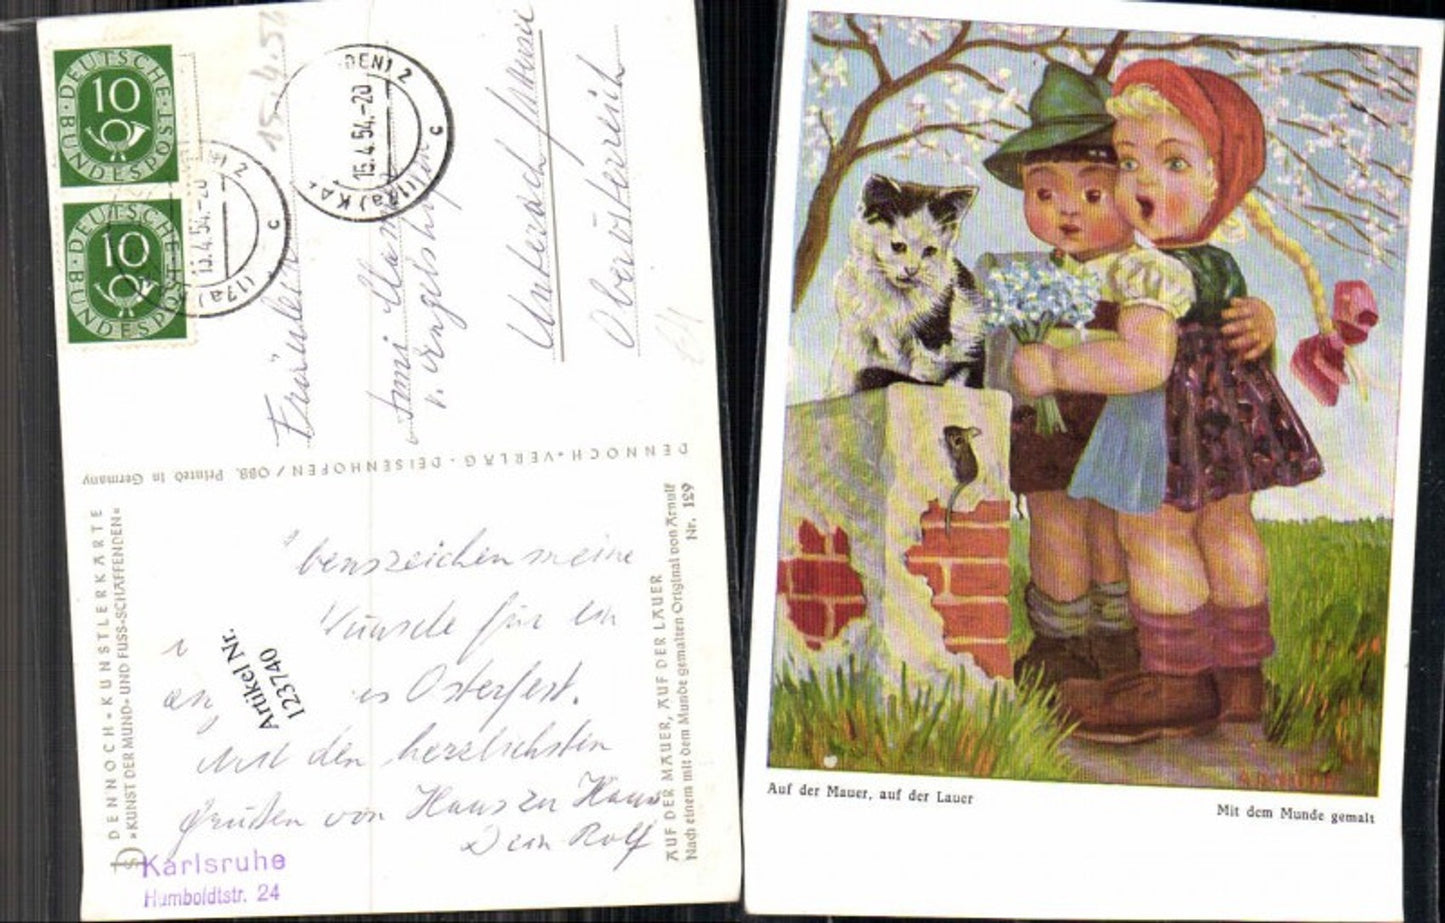 DEUTSCHE
BUNDESPOST
10
DEUTSCHE
BUNDESPOST
10
15.4.54
15.4.54.-20
(17a) KA
DEN) 2
c
15.4.54.-20
(17a)
2
c
Fräulein
v. Engelshofen
Unterach
Oberösterreich
DENNOCH-VERLAG · DEISENHOFEN/OBB. Printed in Germany
DENNOCH-KÜNSTLERKARTE
»KUNST DER MUND- UND FUSS-SCHAFFENDEN«
benszeichen meine
Wünsche für ein
Osterfest.
Mit den herzlichsten
Grüßen von Haus zu Haus
Dein Rolf
Artikel Nr.
123740
AUF DER MAUER, AUF DER LAUER
Nach einem mit dem Munde gemalten Original von Arnulf
Nr. 129
Karlsruhe
Humboldtstr. 24
Auf der Mauer, auf der Lauer
Mit dem Munde gemalt